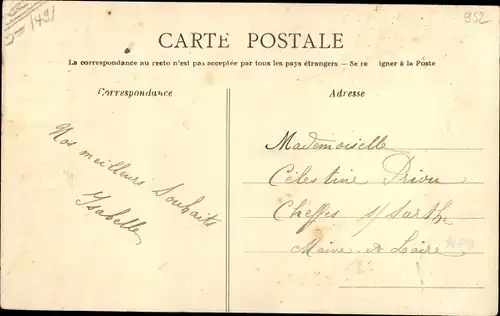 952
CARTE POSTALE
La correspondance au recto n'est pas acceptée par tous les pays étrangers — Se re igner à la Poste
Correspondance
Adresse
Nos meilleurs Souhaits
Ysabelle
Mademoiselle
Célestine Priou
Cheffes s/ Sarthe
Maine & Loire